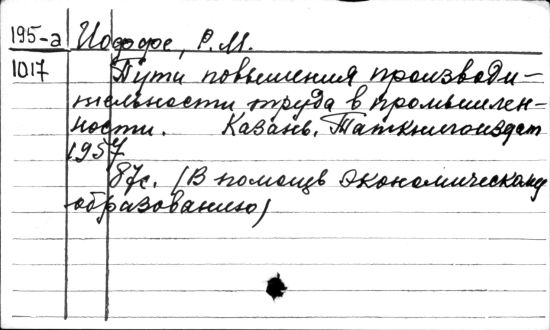 195-а Иоффе, Р.М.
1017 Пути повышения производи-
тельности труда в промышлен-
ности. Казань, Таткнигоиздат
1957
87с. (В помощь экономическому
образованию)